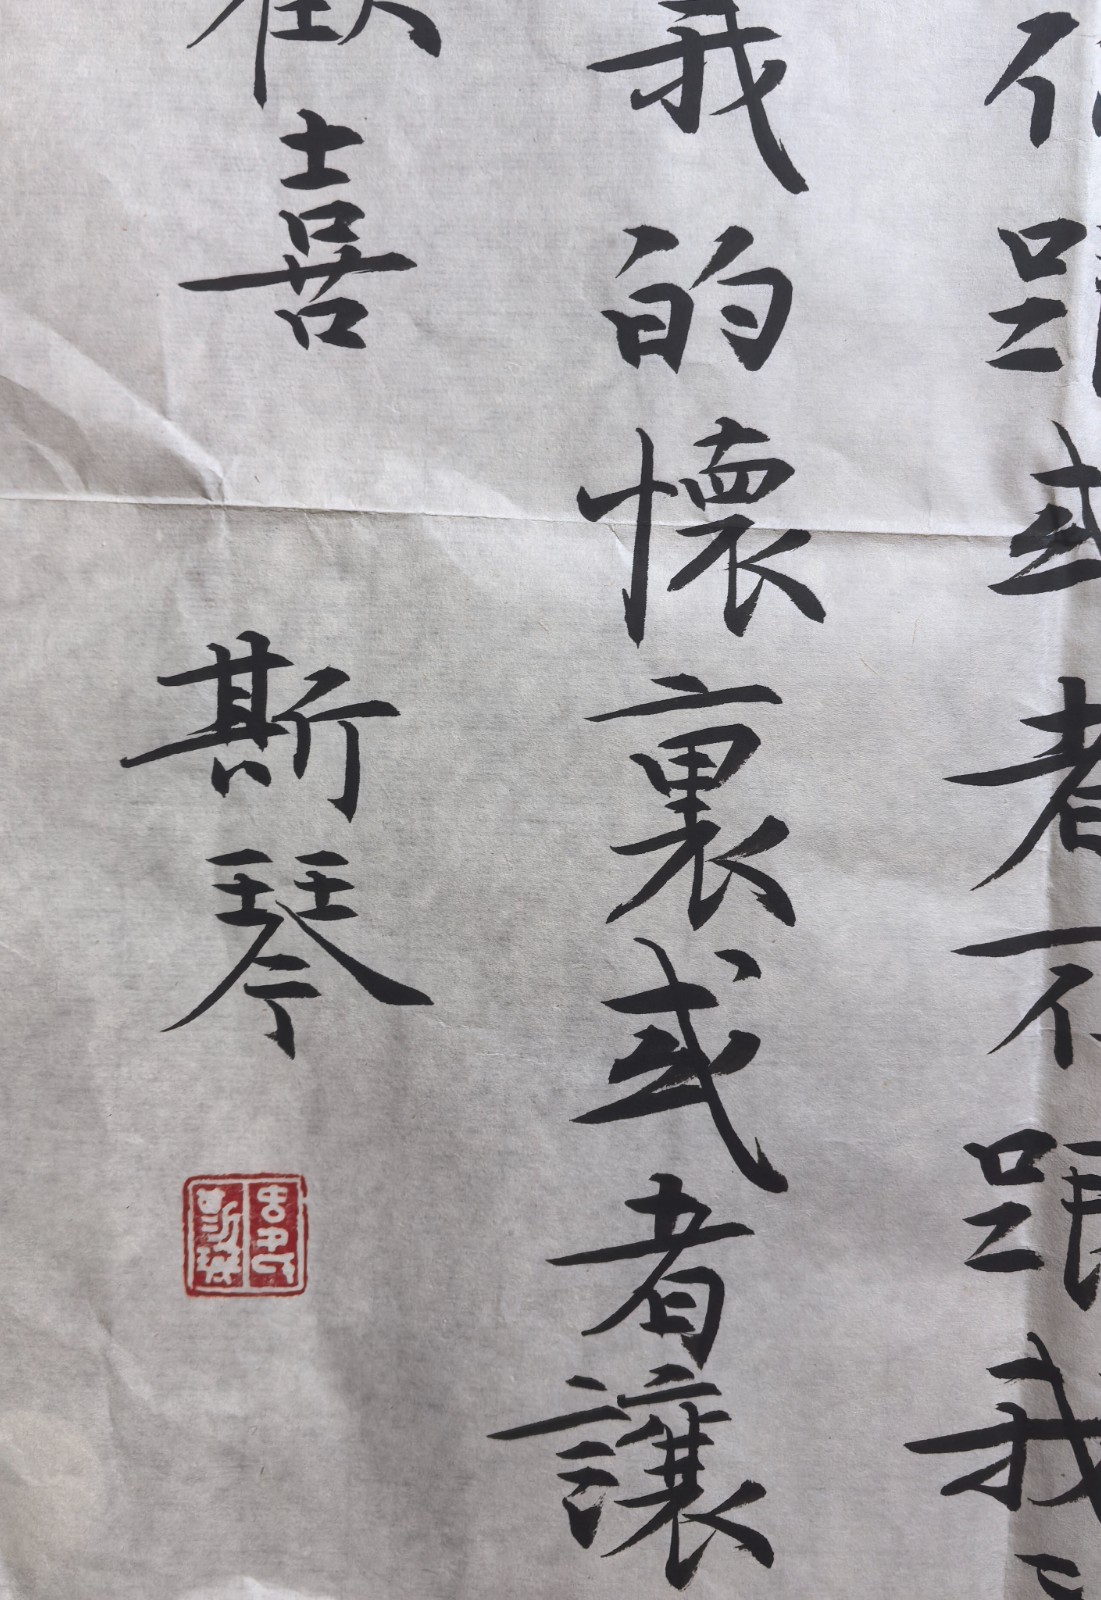 跟或者不跟我
我的懷裏或者讓
喜 斯琴